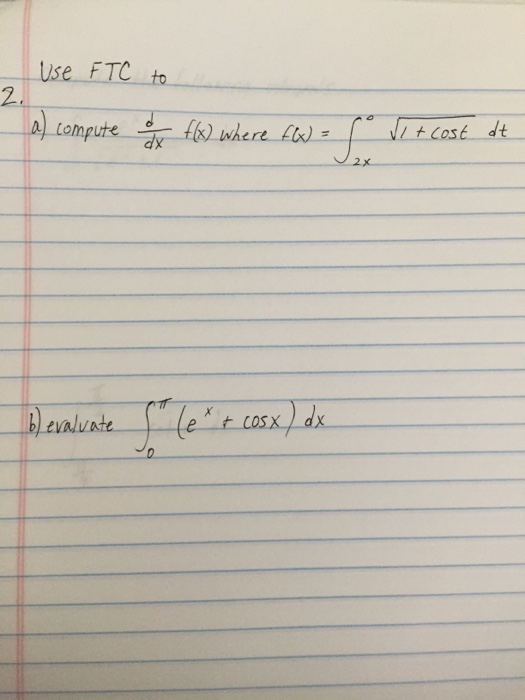 Use FTC to
2.
a) compute d/dx f(x) where f(x) = ∫_{2x}^{0} √(1 + cost) dt
b) evaluate ∫_{0}^{π} (e^x + cosx) dx